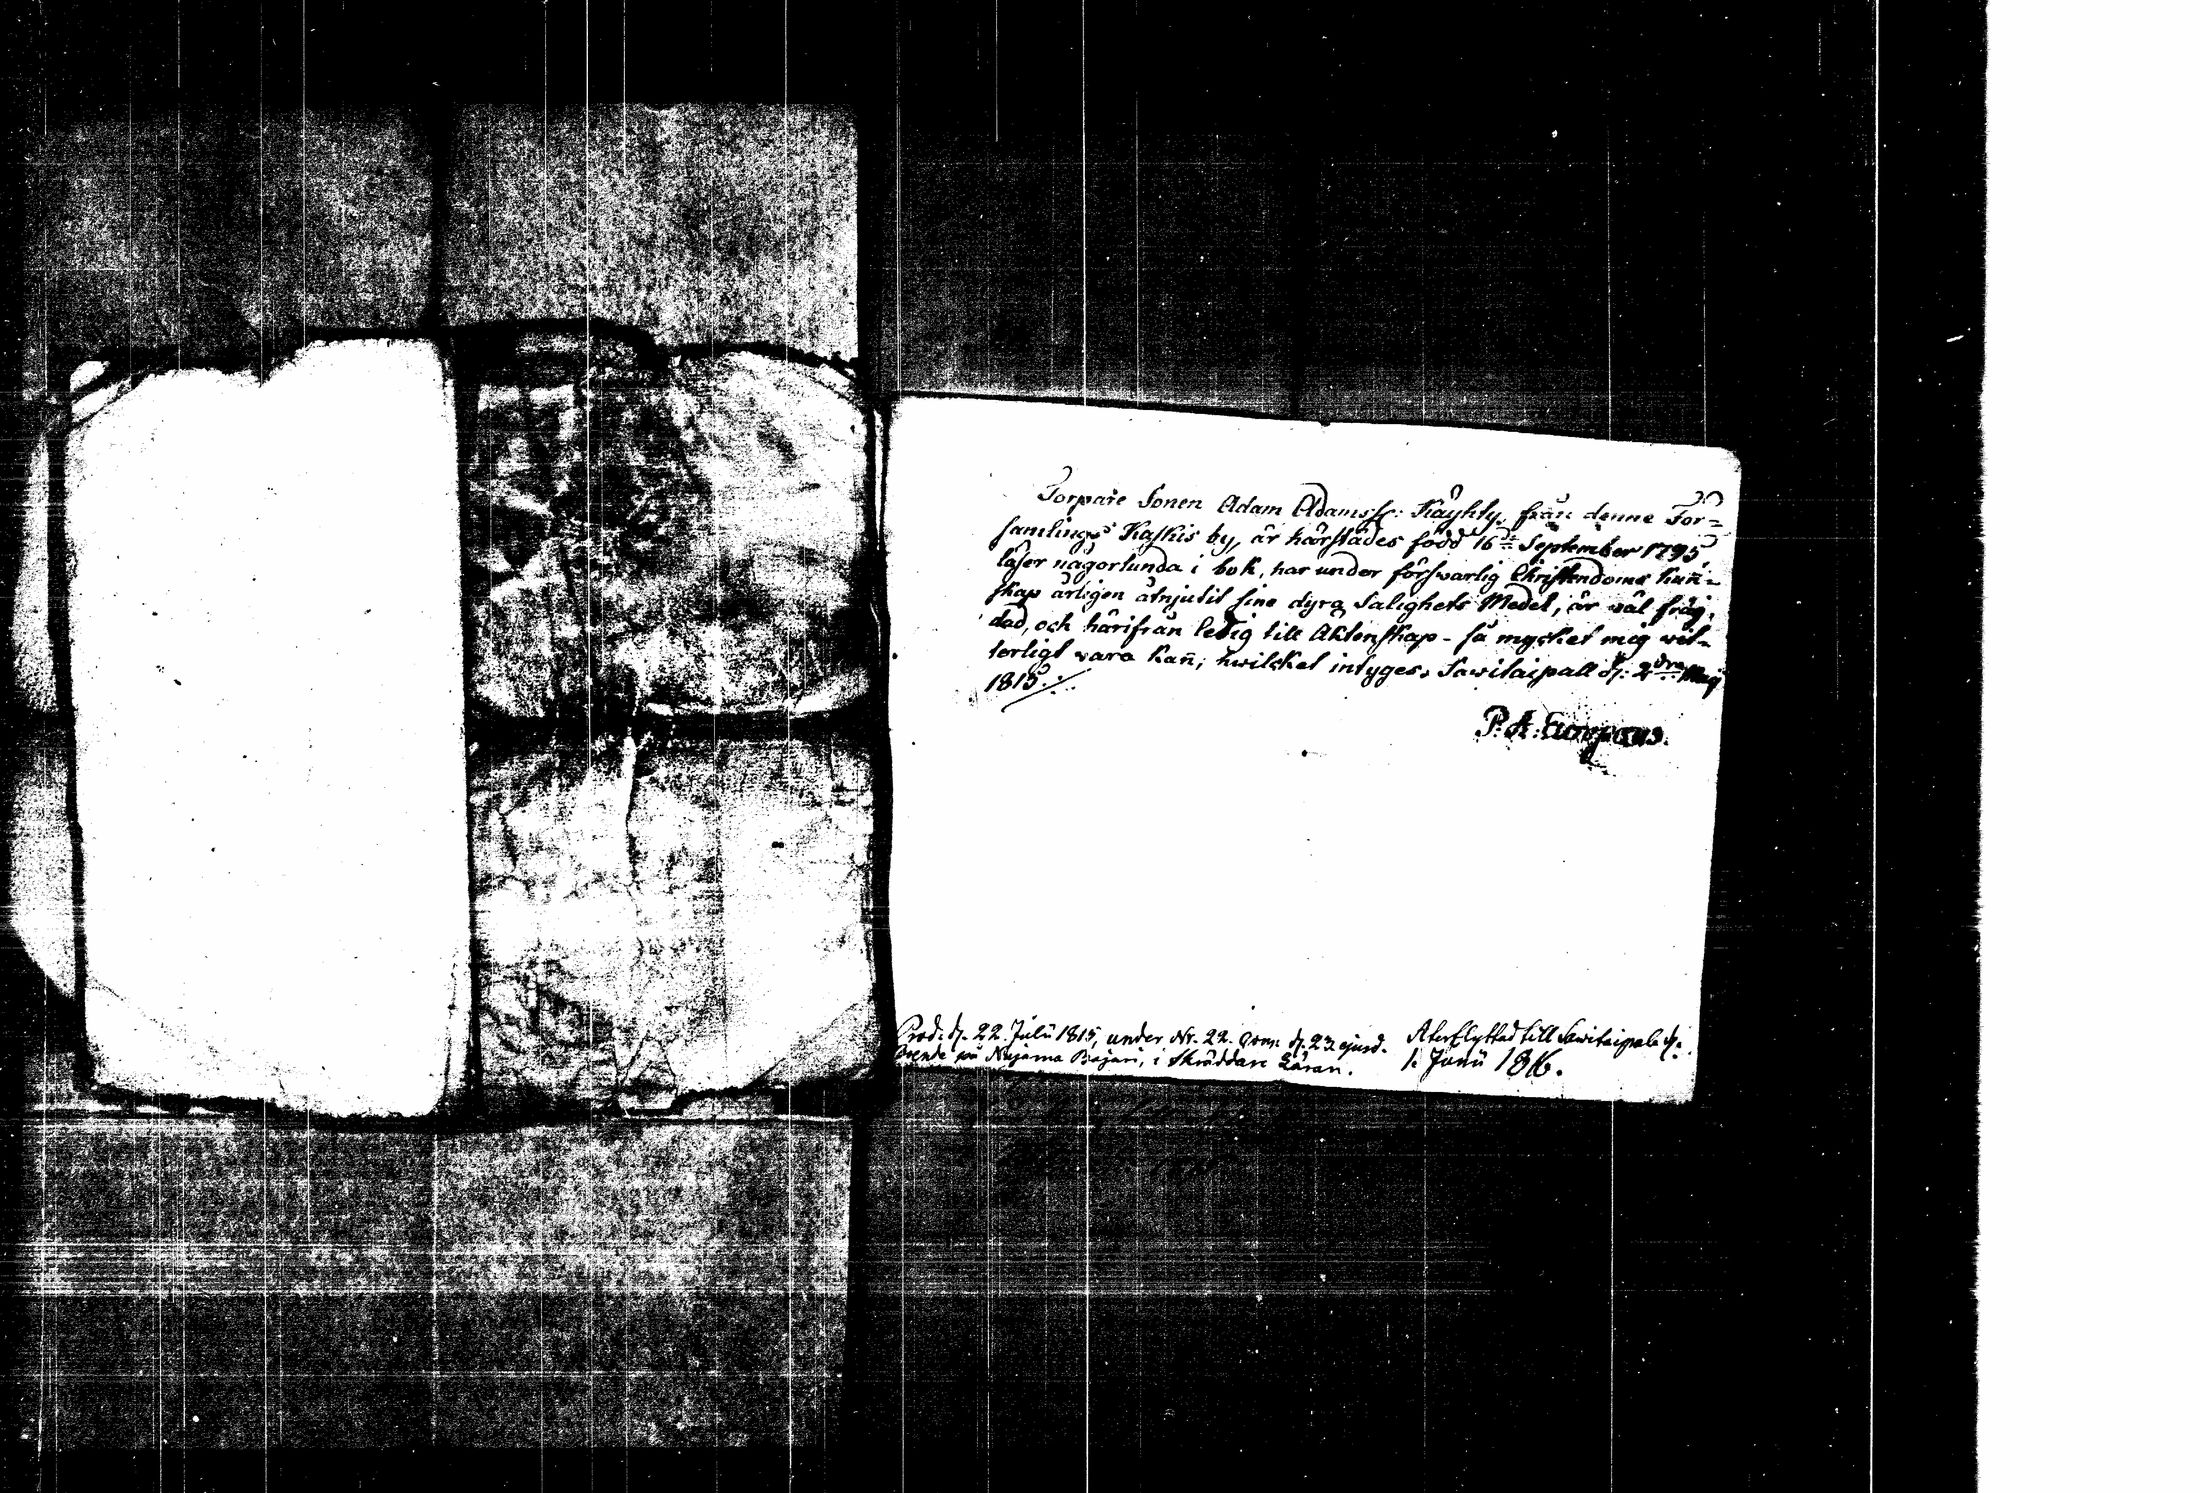 Torpare Sonen Adam Adamss: Käyhty, från denne För=
samlings Kaskis by, är härstädes född 16de September 1795
läser någorlunda i bok, har under försvarlig Christendoms kun̄-
skap årligen åtnjutit sine dyra Salighets Medel, är väl fräg,
dad, och härifrån ledig till Äktenskap - så mycket mig vet-
terligt vara kan̄; hwilcket intyges. Sawitaipall d: 2dra Maij
1815
P. A. Europæus.
Prod: d. 22. Julii 1815, under Nr. 22. d. 23 ejusd. Återflyttad till Sawitaipale d:
på Bajari, i Skräddare Läran. 1. Junii 1816.